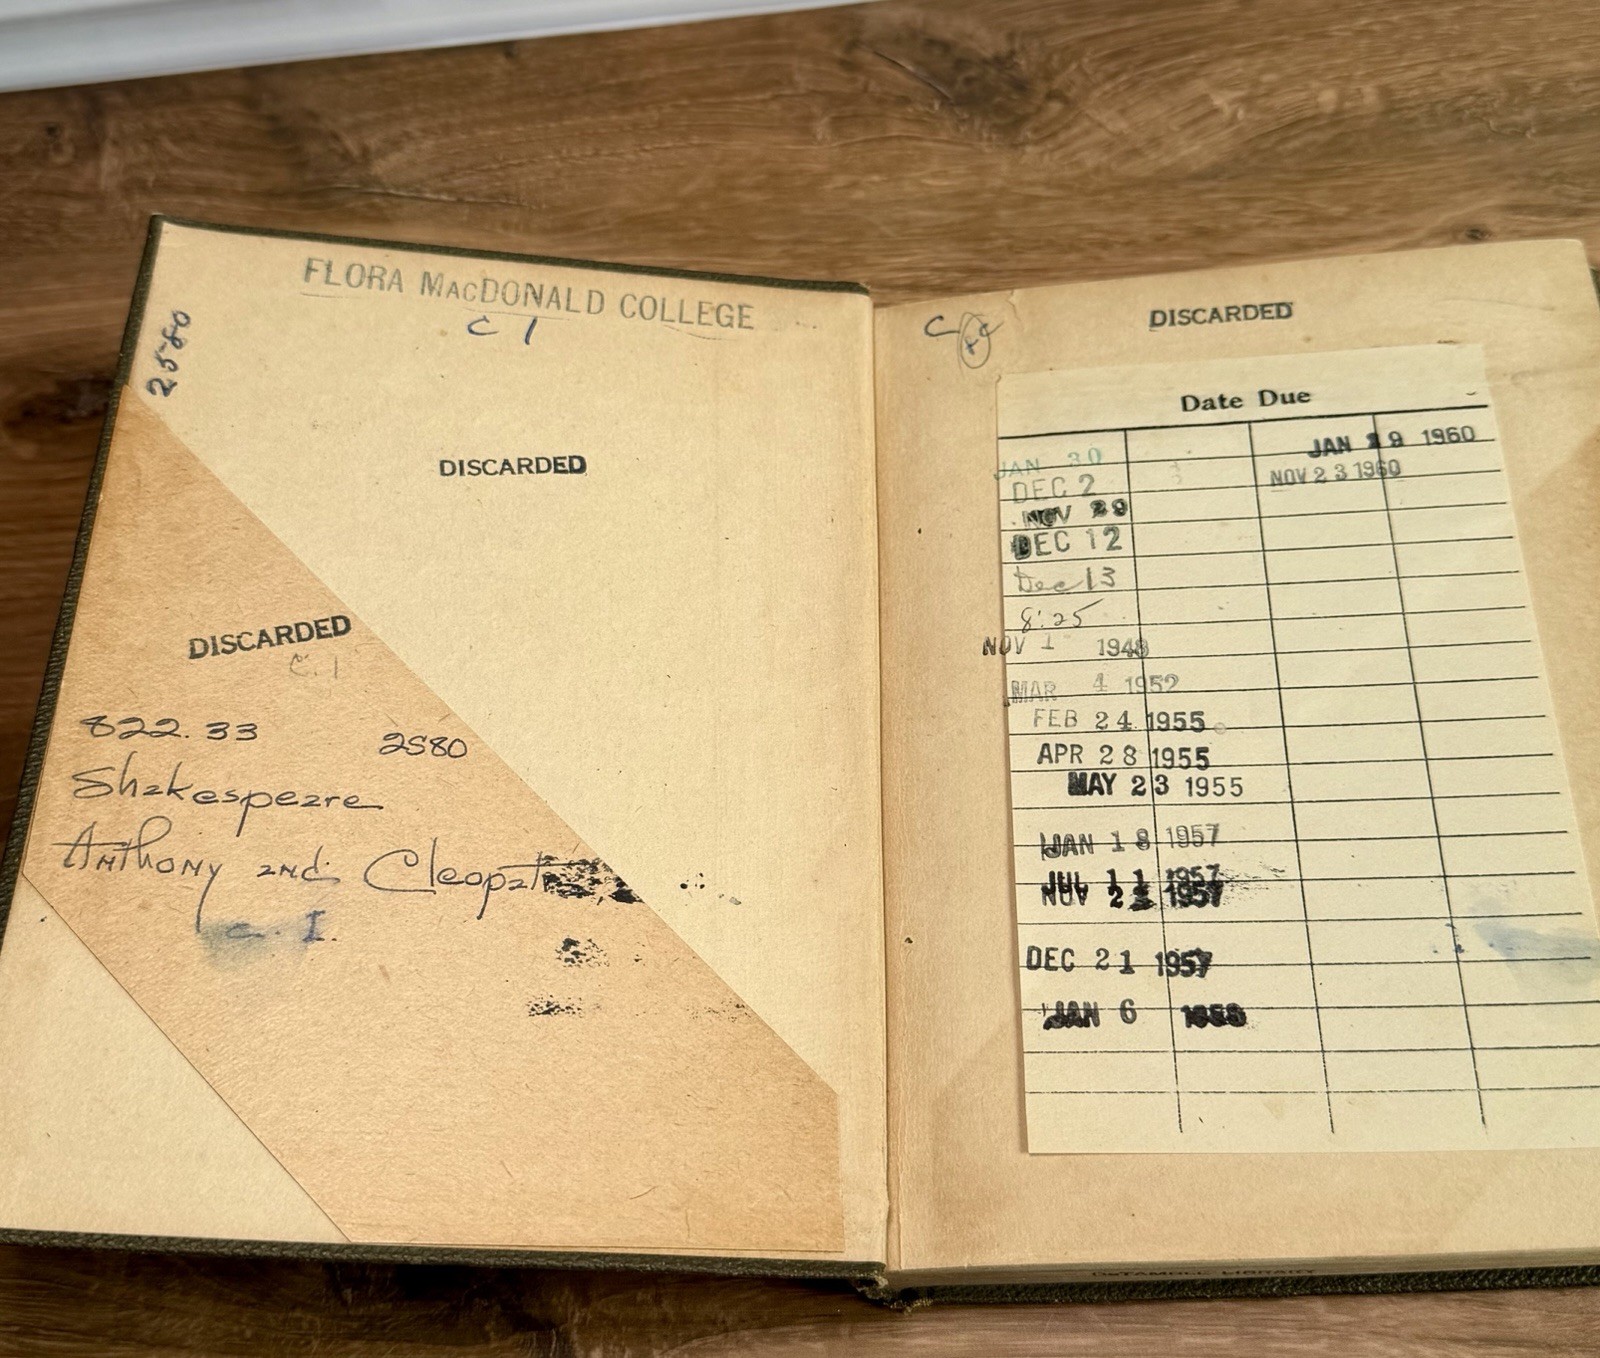 FLORA MACDONALD COLLEGE
C 1
2580
DISCARDED
DISCARDED
C. 1
822.33 2580
Shakespeare
Anthony and Cleopat
c. I.
DISCARDED
Date Due
JAN 30
DEC 2
NOV 29
DEC 12
Dec 13
8:25
NOV 1 1948
MAR 4 1952
FEB 24 1955
APR 28 1955
MAY 23 1955
JAN 18 1957
JUL 11 1957
NOV 2 1957
DEC 21 1957
JAN 6 1958
JAN 9 1960
NOV 23 1960
LIBRARY